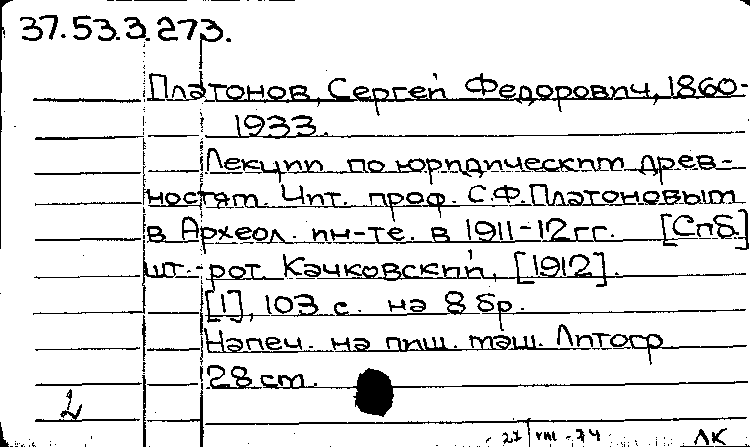 37.53.3.273.
Платонов, Сергей Федорович, 1860-
1933.
Лекции по юридическим древ-
ностям. Чит. проф. С.Ф.Платоновым
в Археол. ин-те. в 1911-12гг. [Спб.]
шт.-рот. Качковский, [1912].
[1], 103 с. на 8 бр.
Напеч. на пиш. маш. Литогр
28 см.
2
27/VIII-74 ЛК